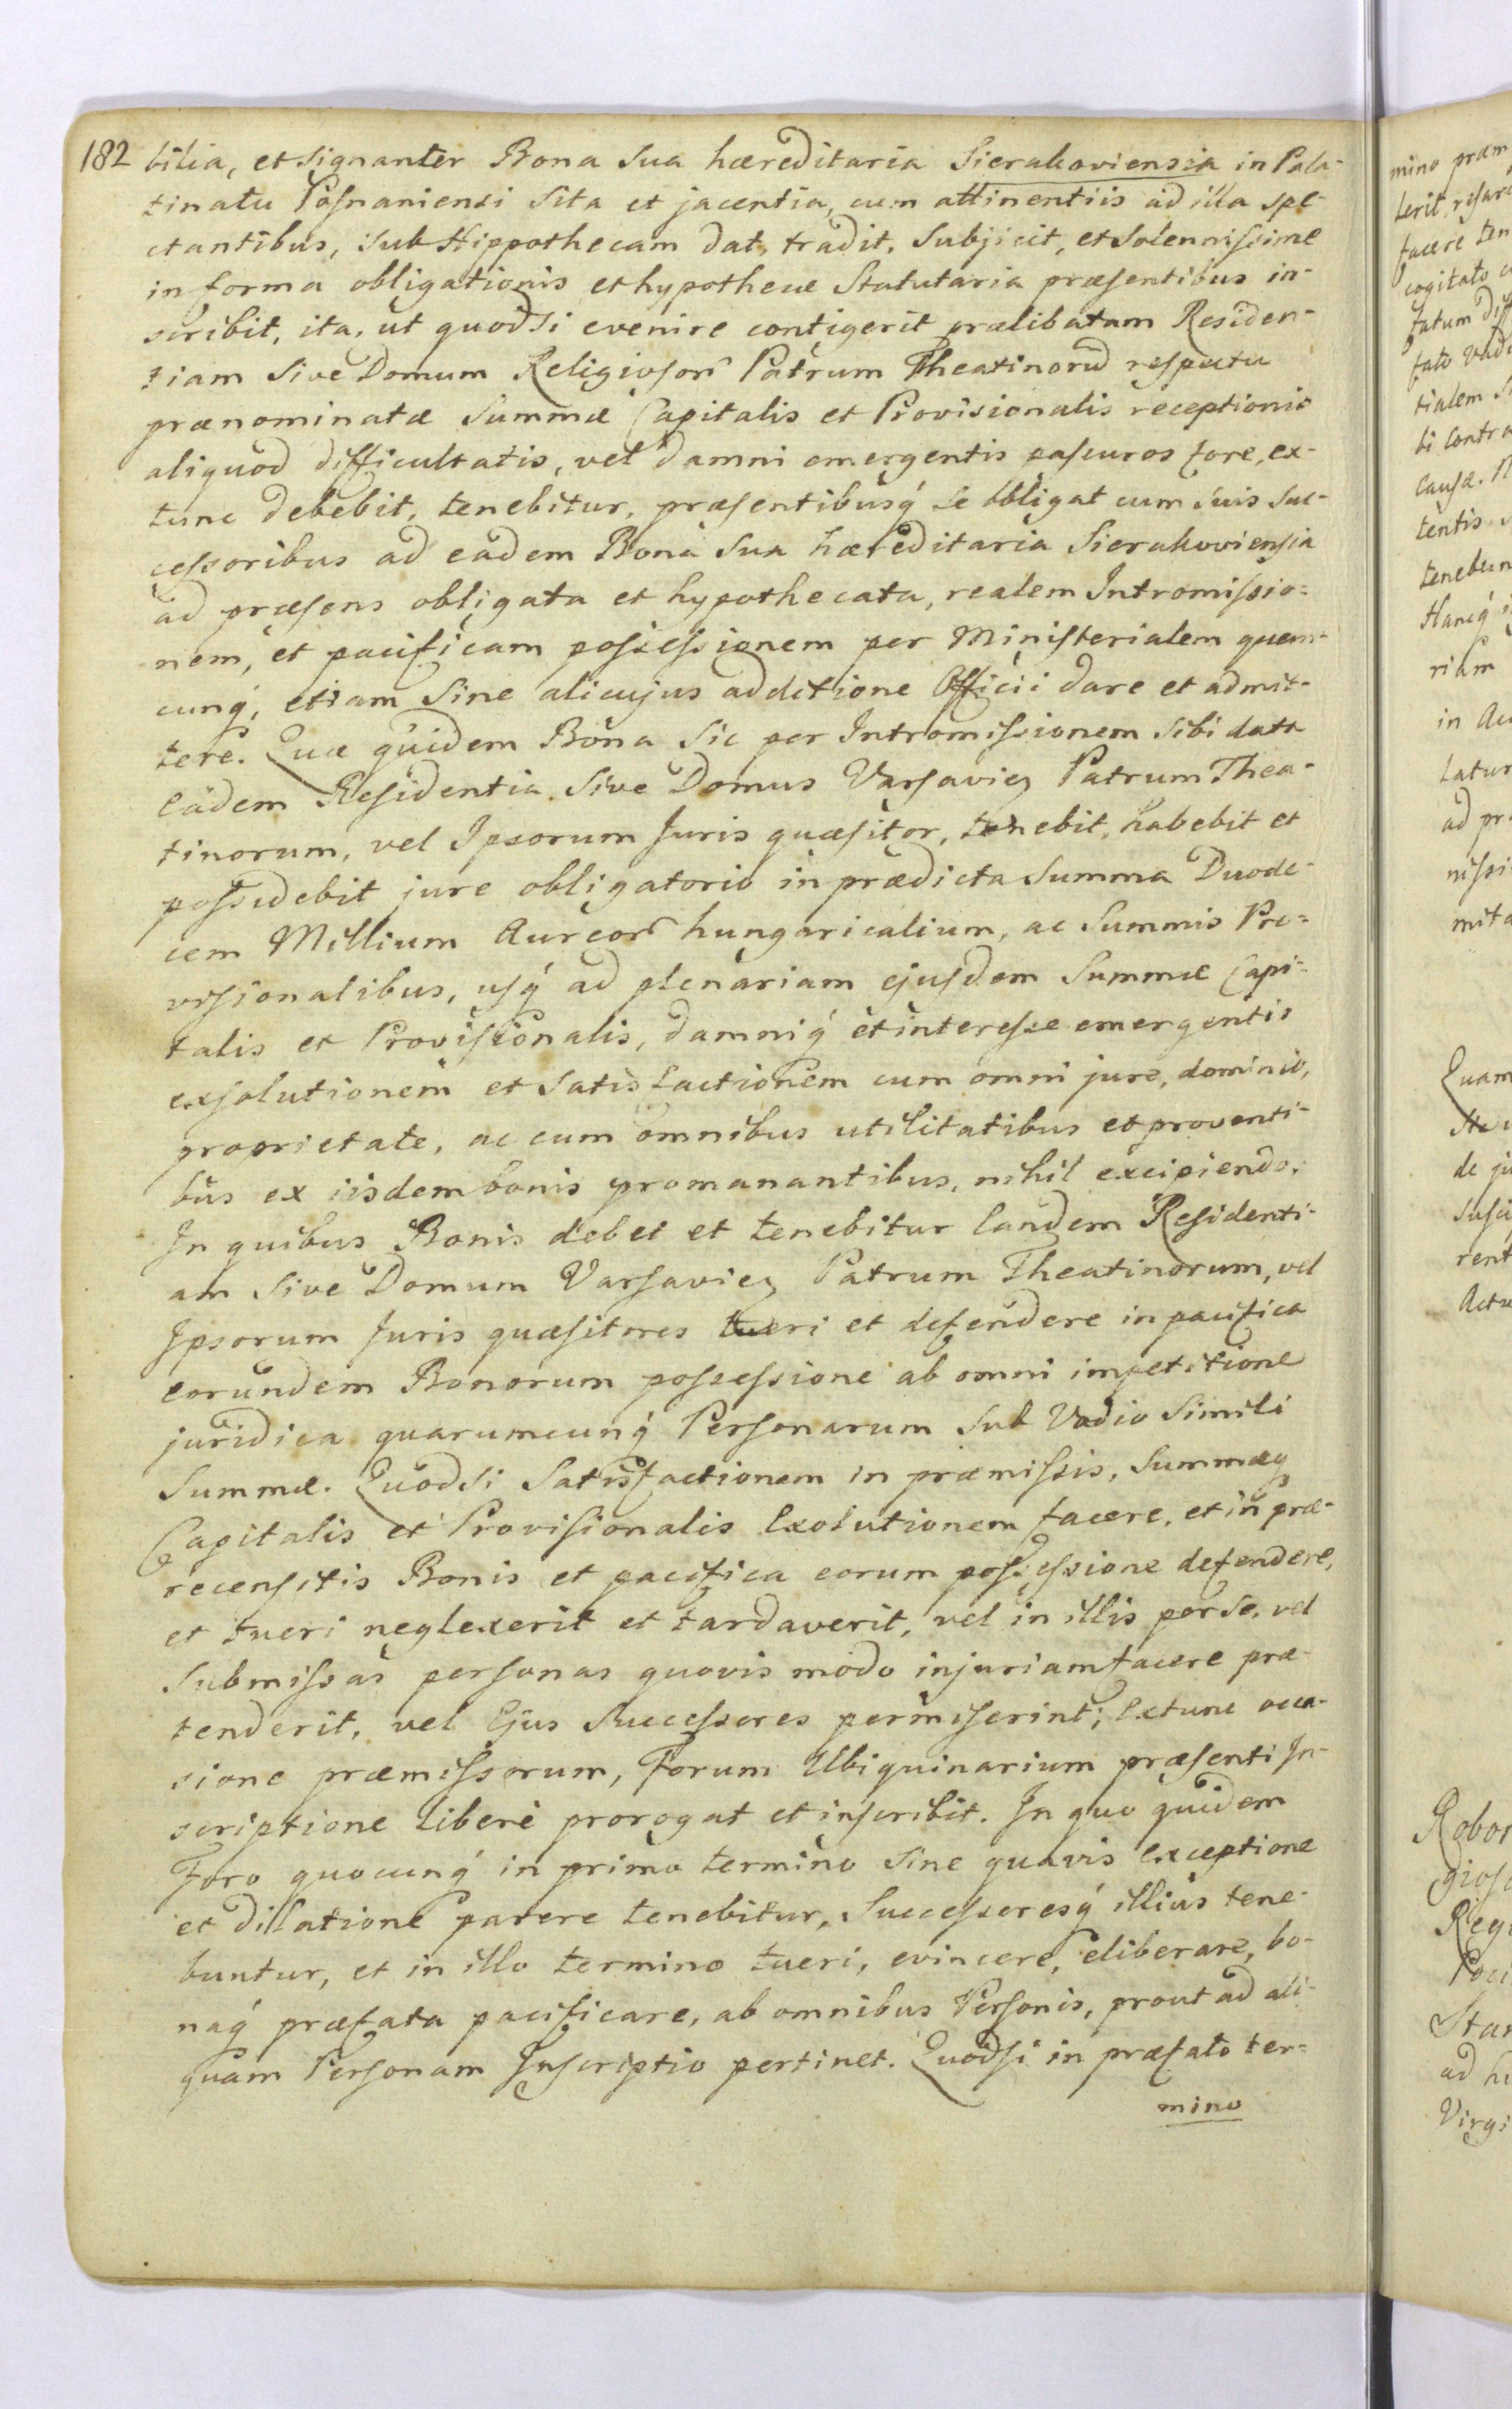 182 bilia, et signanter Bona sua hæreditaria Sierakoviensia in Pala-
tinatu Posnaniensi sita et jacentia, cum attinentiis ad illa spe-
ctantibus, sub Hippothecam dat, tradit, subjicit, et solennissime
in forma obligationis et hypothecæ Statutaria præsentibus in-
scribit, ita, ut quodsi evenire contigerit prælibatam Residen-
tiam sive Domum Religiosor Patrum Theatinorū respectu
prænominatæ Summæ Capitalis et Provisionalis receptionis
aliquod difficultatis, vel damni emergentis passuros fore, ex-
tunc debebit, tenebitur, præsentibusq́ se obligat cum suis suc-
cessoribus ad eadem Bona sua hæreditaria Sierakoviensia
ad præsens obligata et hypothecata, realem Intromissio=
nem, et pacificam possessionem per Ministerialem quem-
cunq́, etiam sine alicujus additione Officii dare et admit-
tere. Quæ quidem Bona sic per Intromissionem sibi data
eadem Residentia sive Domus Varsavien Patrum Thea-
tinorum, vel Ipsorum Juris quæsitor, tenebit, habebit et
possidebit jure obligatorio in prædicta Summa Duode-
cem Millium Aureor hungaricalium, ac Summis Pro=
visionalibus, usq́ ad plenariam ejusdem Summæ Capi=
talis et Provisionalis, damniq́ et interesse emergentis
exsolutionem et satisfactionem cum omni jure, dominio,
proprietate, ac cum omnibus utilitatibus et proventi-
bus ex iisdem bonis promanantibus, nihil excipiendo.
In quibus Bonis debet et tenebitur eandem Residenti-
am sive Domum Varsavien Patrum Theatinorum, vel
Ipsorum Juris quæsitores tueri et defendere in pacifica
eorundem Bonorum possessione ab omni impetitione
juridica quarumcunq́ Personarum sub Vadio simili
Summæ. Quodsi satisfactionem in præmissis, Summæq
Capitalis et Provisionalis Exolutionem facere, et in præ-
recensitis Bonis et pacifica eorum possessione defendere,
et tueri neglexerit et tardaverit, vel in illis per se, vel
submissas personas quovis modo injuriam facere præ-
tenderit, vel Ejus Successores permiserint; Extunc occa-
sione præmissorum, Forum Ubiquinarium præsenti In-
scriptione liberè prorogat et inscribit. In quo quidem
Foro quocunq́ in primo termino sine quavis exceptione
et dillatione parere tenebitur, Successoresq́ illius tene-
buntur, et in illo termino tueri, evincere, eliberare, bo-
naq́ præfata pacificare, ab omnibus Personis, prout ad ali-
quam Personam Inscriptio pertinet. Quodsi in præfato ter=
mino
mino præm
terit, resarc
facere ten
cogitato
fatum diff
fato vad
tialem
bi contra
causæ.
tentis
tenebun
Hancq́
riam
in Ac
latur
ad pr
nissi
mit
Quam
de ju
susci
rent
Act
Robor
gios
Reg
Star
ad h
Virgi